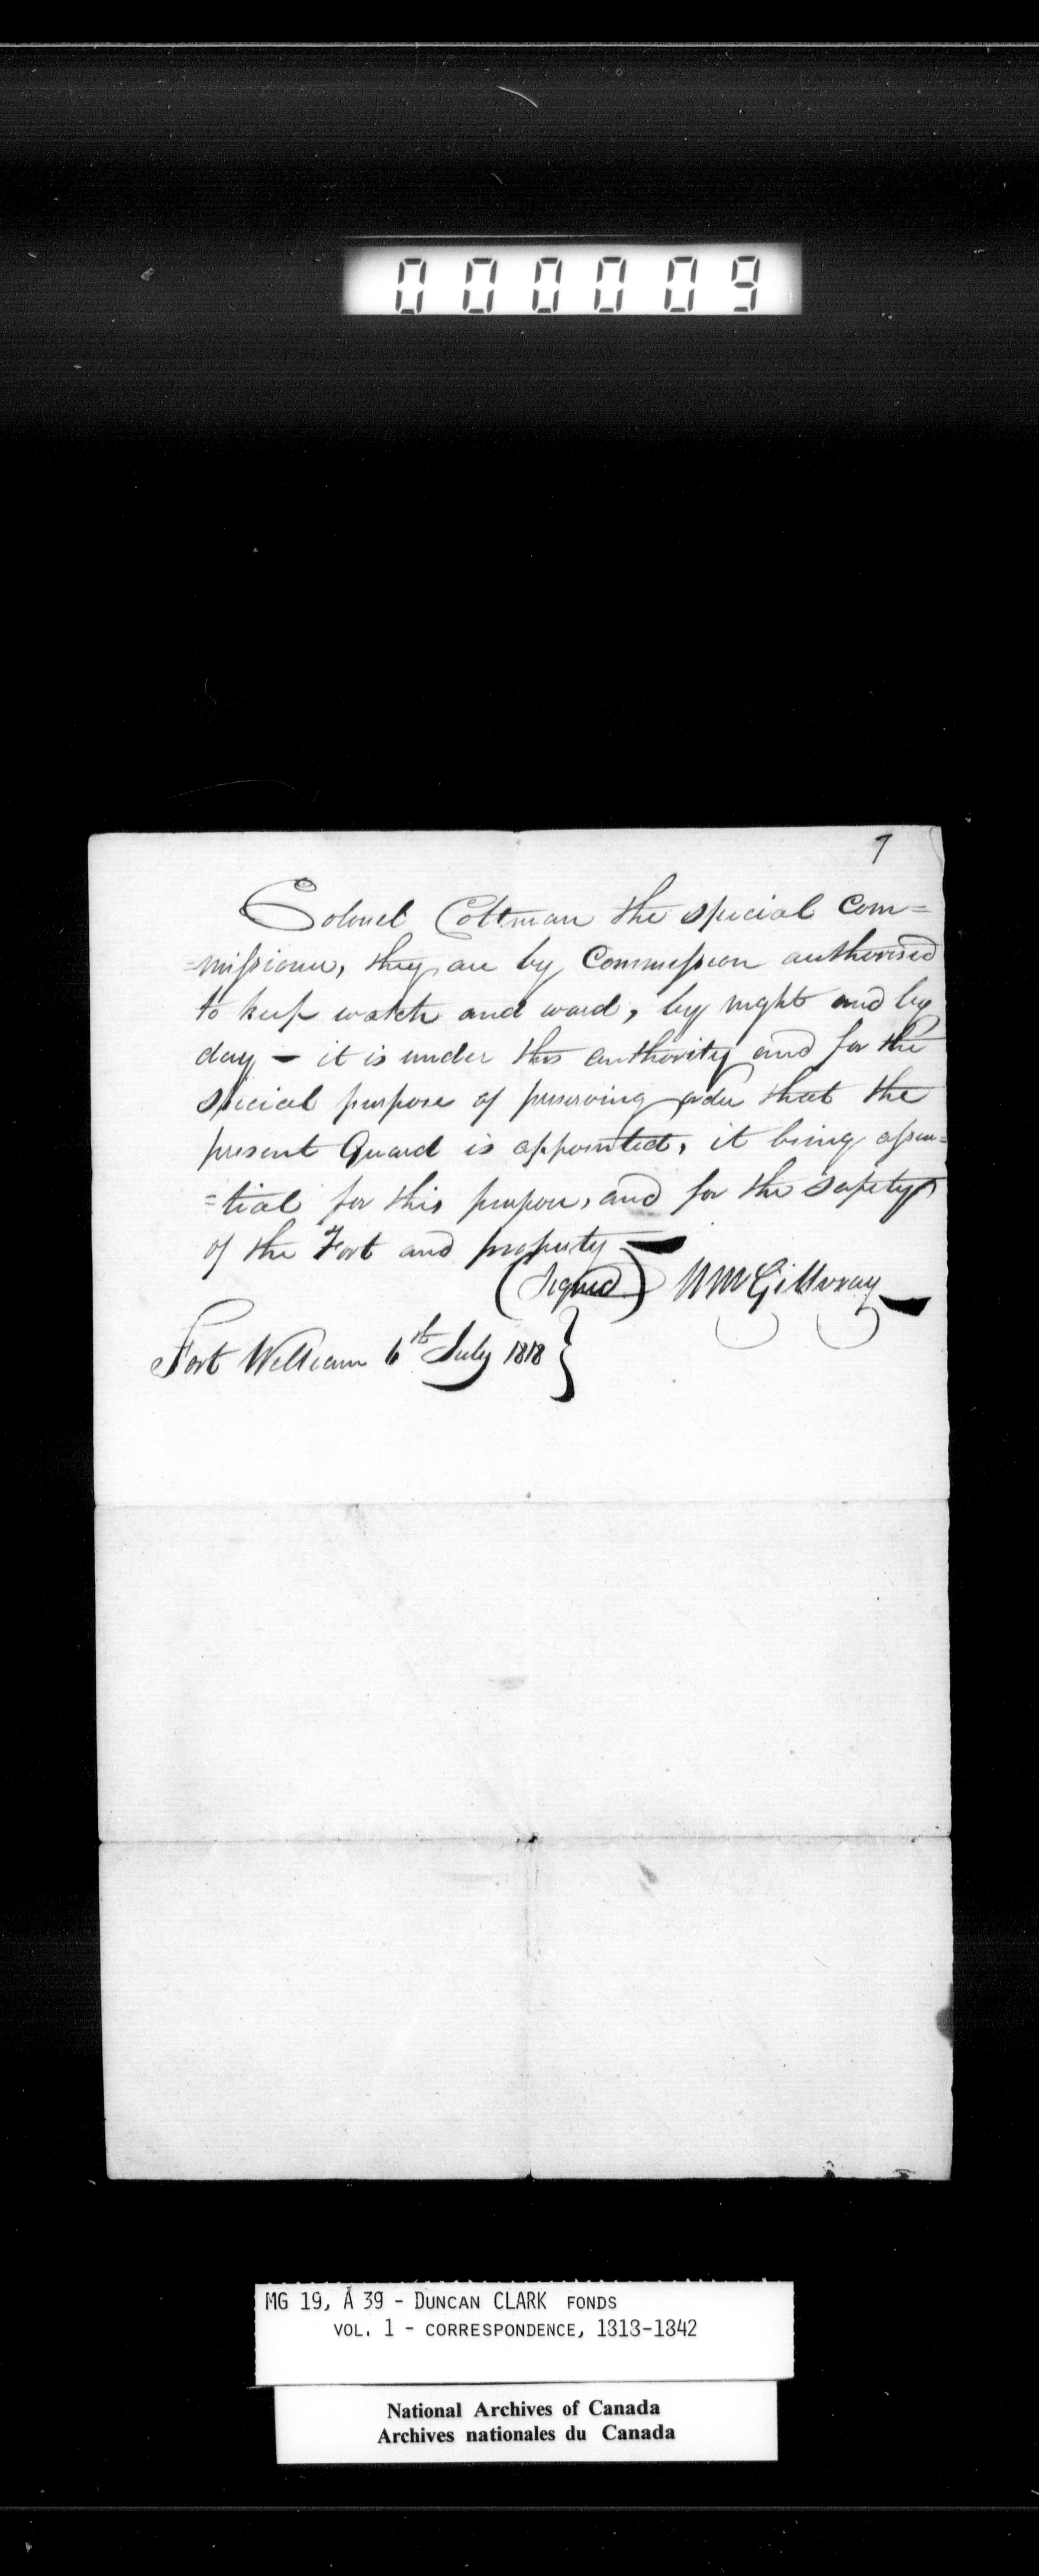 000009
7
Colonel Coltman the special com=
=missioner, they are by Commission authorised
to keep watch and ward, by night and by
day – it is under this authority and for the
special purpose of preserving order that the
present Guard is appointed, it being assen=
=tial for this purpose, and for the safety
of the Fort and property
(Signed) W McGillivray
Fort William 6th July 1818 }
MG 19, A 39 - DUNCAN CLARK FONDS
VOL. 1 - CORRESPONDENCE, 1813-1842
National Archives of Canada
Archives nationales du Canada